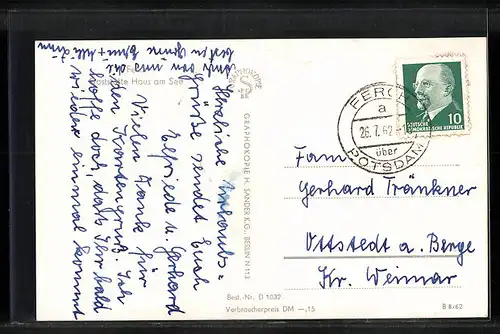 Gaststätte Haus am See
Herzliche Urlaubs-
grüße sendet Euch
Elfriede u. Gerhard
Vielen Dank für
den Kartengruß. Ich
hoffe doch, daß Ihr bald
wieder einmal kommt
GRAPHOKOPIE
GRAPHOKOPIE H. SANDER K.G., BERLIN N 113
FERCH
a
26.7.62
über
POTSDAM
DEUTSCHE
DEMOKRATISCHE REPUBLIK
10
Fam.
Gerhard Tränkner
Ottstedt a. Berge
Kr. Weimar
Best.-Nr. D 1032
Verbraucherpreis DM —,15
B 8/62